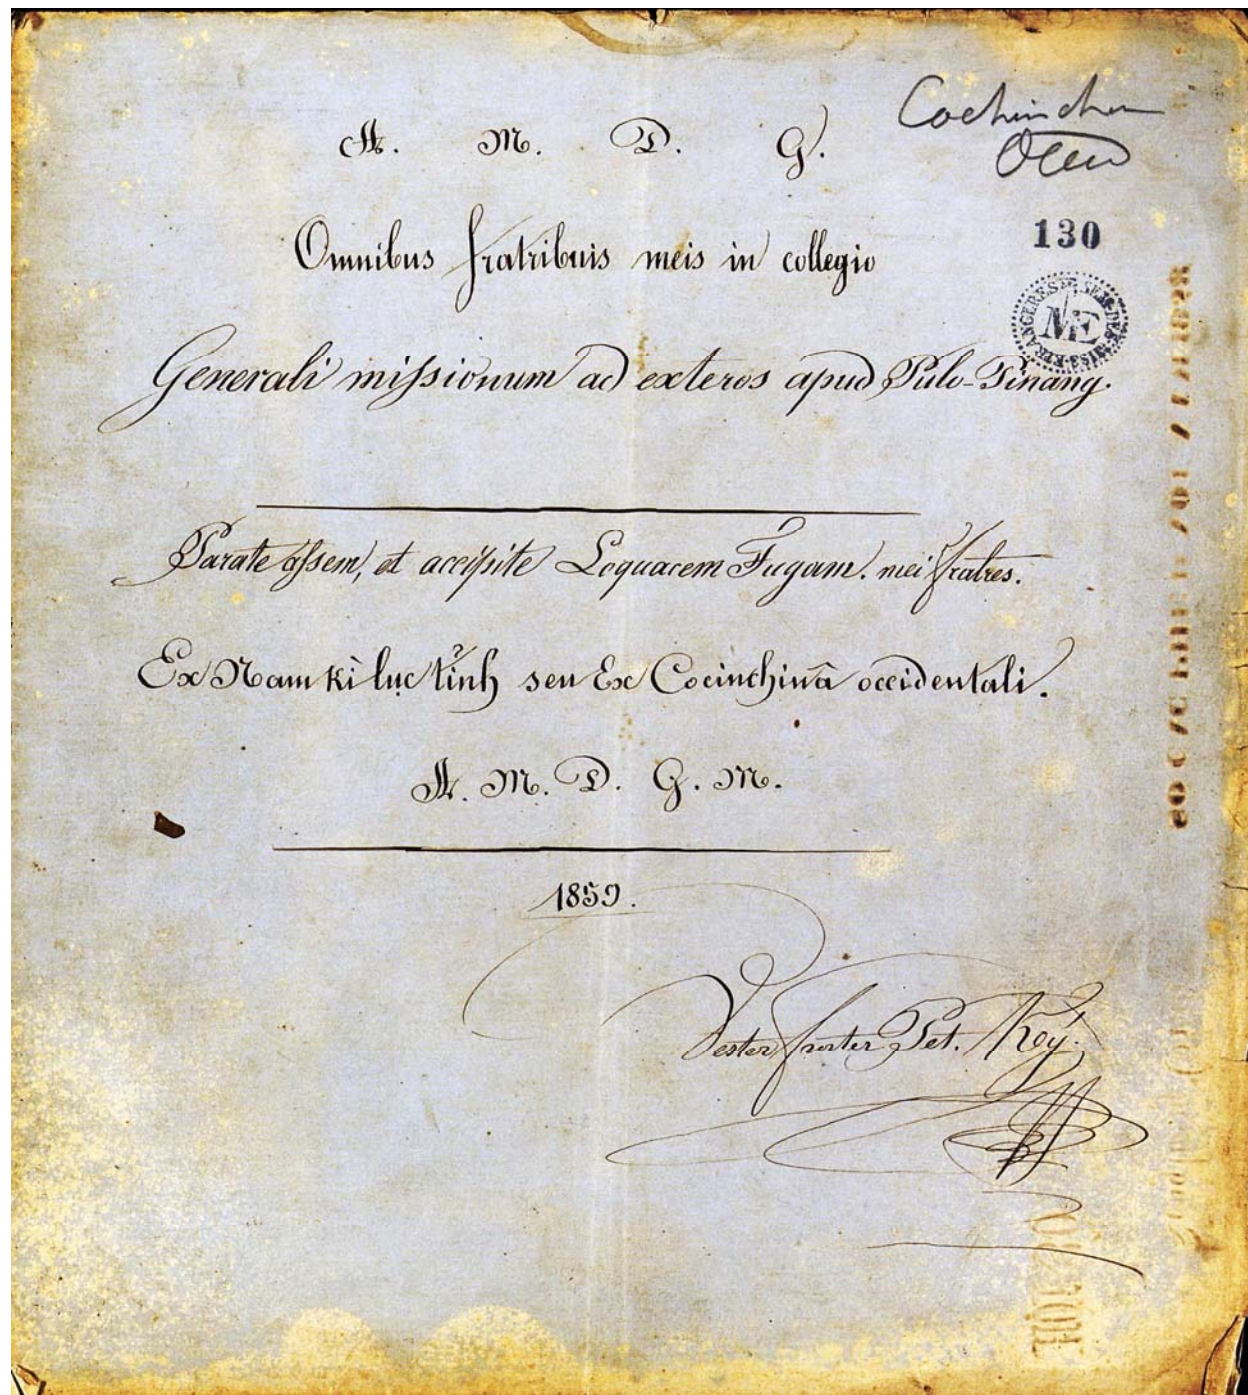 A. M. D. G.
Cochinchine
Occid
130
SEM. DES MISS. ETRANGERES
ME
Omnibus fratribuis meis in collegio
Generali missionum ad exteros apud Pulo-Pinang.
Parate assem, et accipite Loquacem Fugam. mei fratres.
Ex Nam Kì lục tỉnh seu Ex Cocinchinâ occidentali.
A. M. D. G. M.
1859.
Vester frater Pet. Ký.